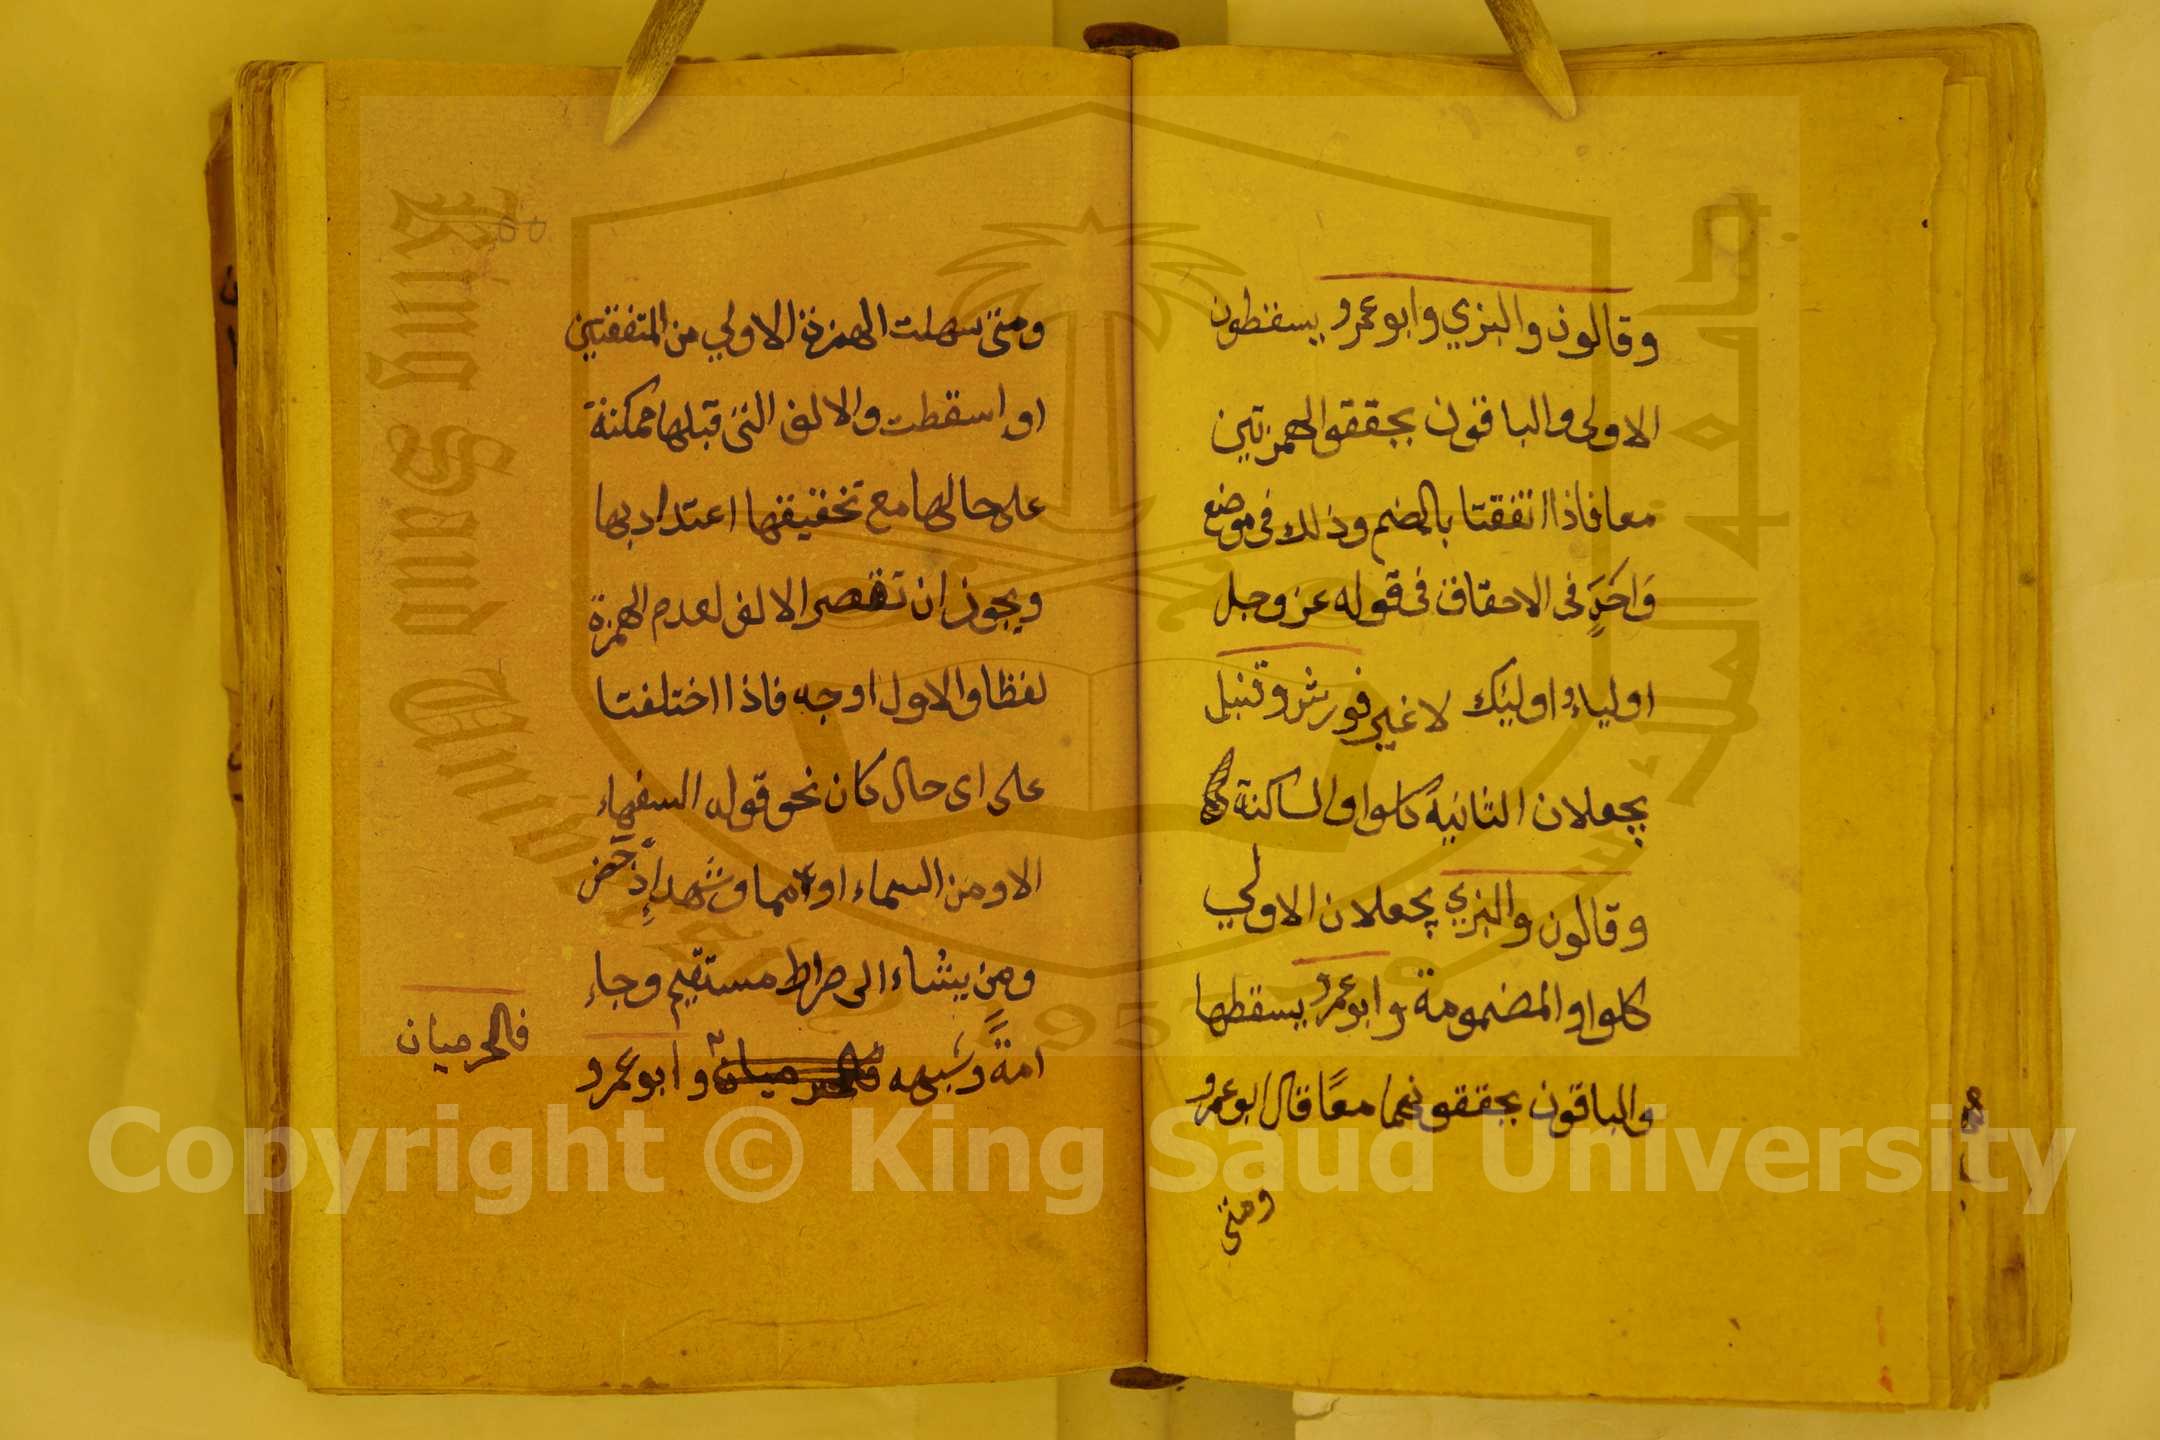 وقالون والبزي وابو عمرو يسقطون
الاولى والباقون يحققوا الهمزتين
معا فاذا اتفقتا بالضم وذلك في موضع
وَاحَدٍ في الاحقاف في قوله عز وجل
اولياءُ اوليك لا غير فورش وقنبل
يجعلان الثانية كالواو الساكنة
وقالون والبزي يجعلان الاولي
كالواو المضمومة وابو عمرو يسقطها
والباقون يحققونهما معًا قال ابو عمرو
ومتى
ومتى سهلت الهمزة الاولي من المتفقتين
او اسقطت والالف التى قبلها ممكنة
على حالها مع تخفيفها اعتداد بها
ويجوز ان تقصر الالف لعدم الهمزة
لفظا والاول اوجه فاذا اختلفتا
على اى حال كان نحو قوله السفهاء
الا ومن السماء او مما وشهداء اذ حضر
ومن يشاء الى صراط مستقيم وجاء
امةً وشبهه فالحرميان وابو عمرو
فالحرميان
جامعة الملك سعود
King Saud University
1957
Copyright © King Saud University